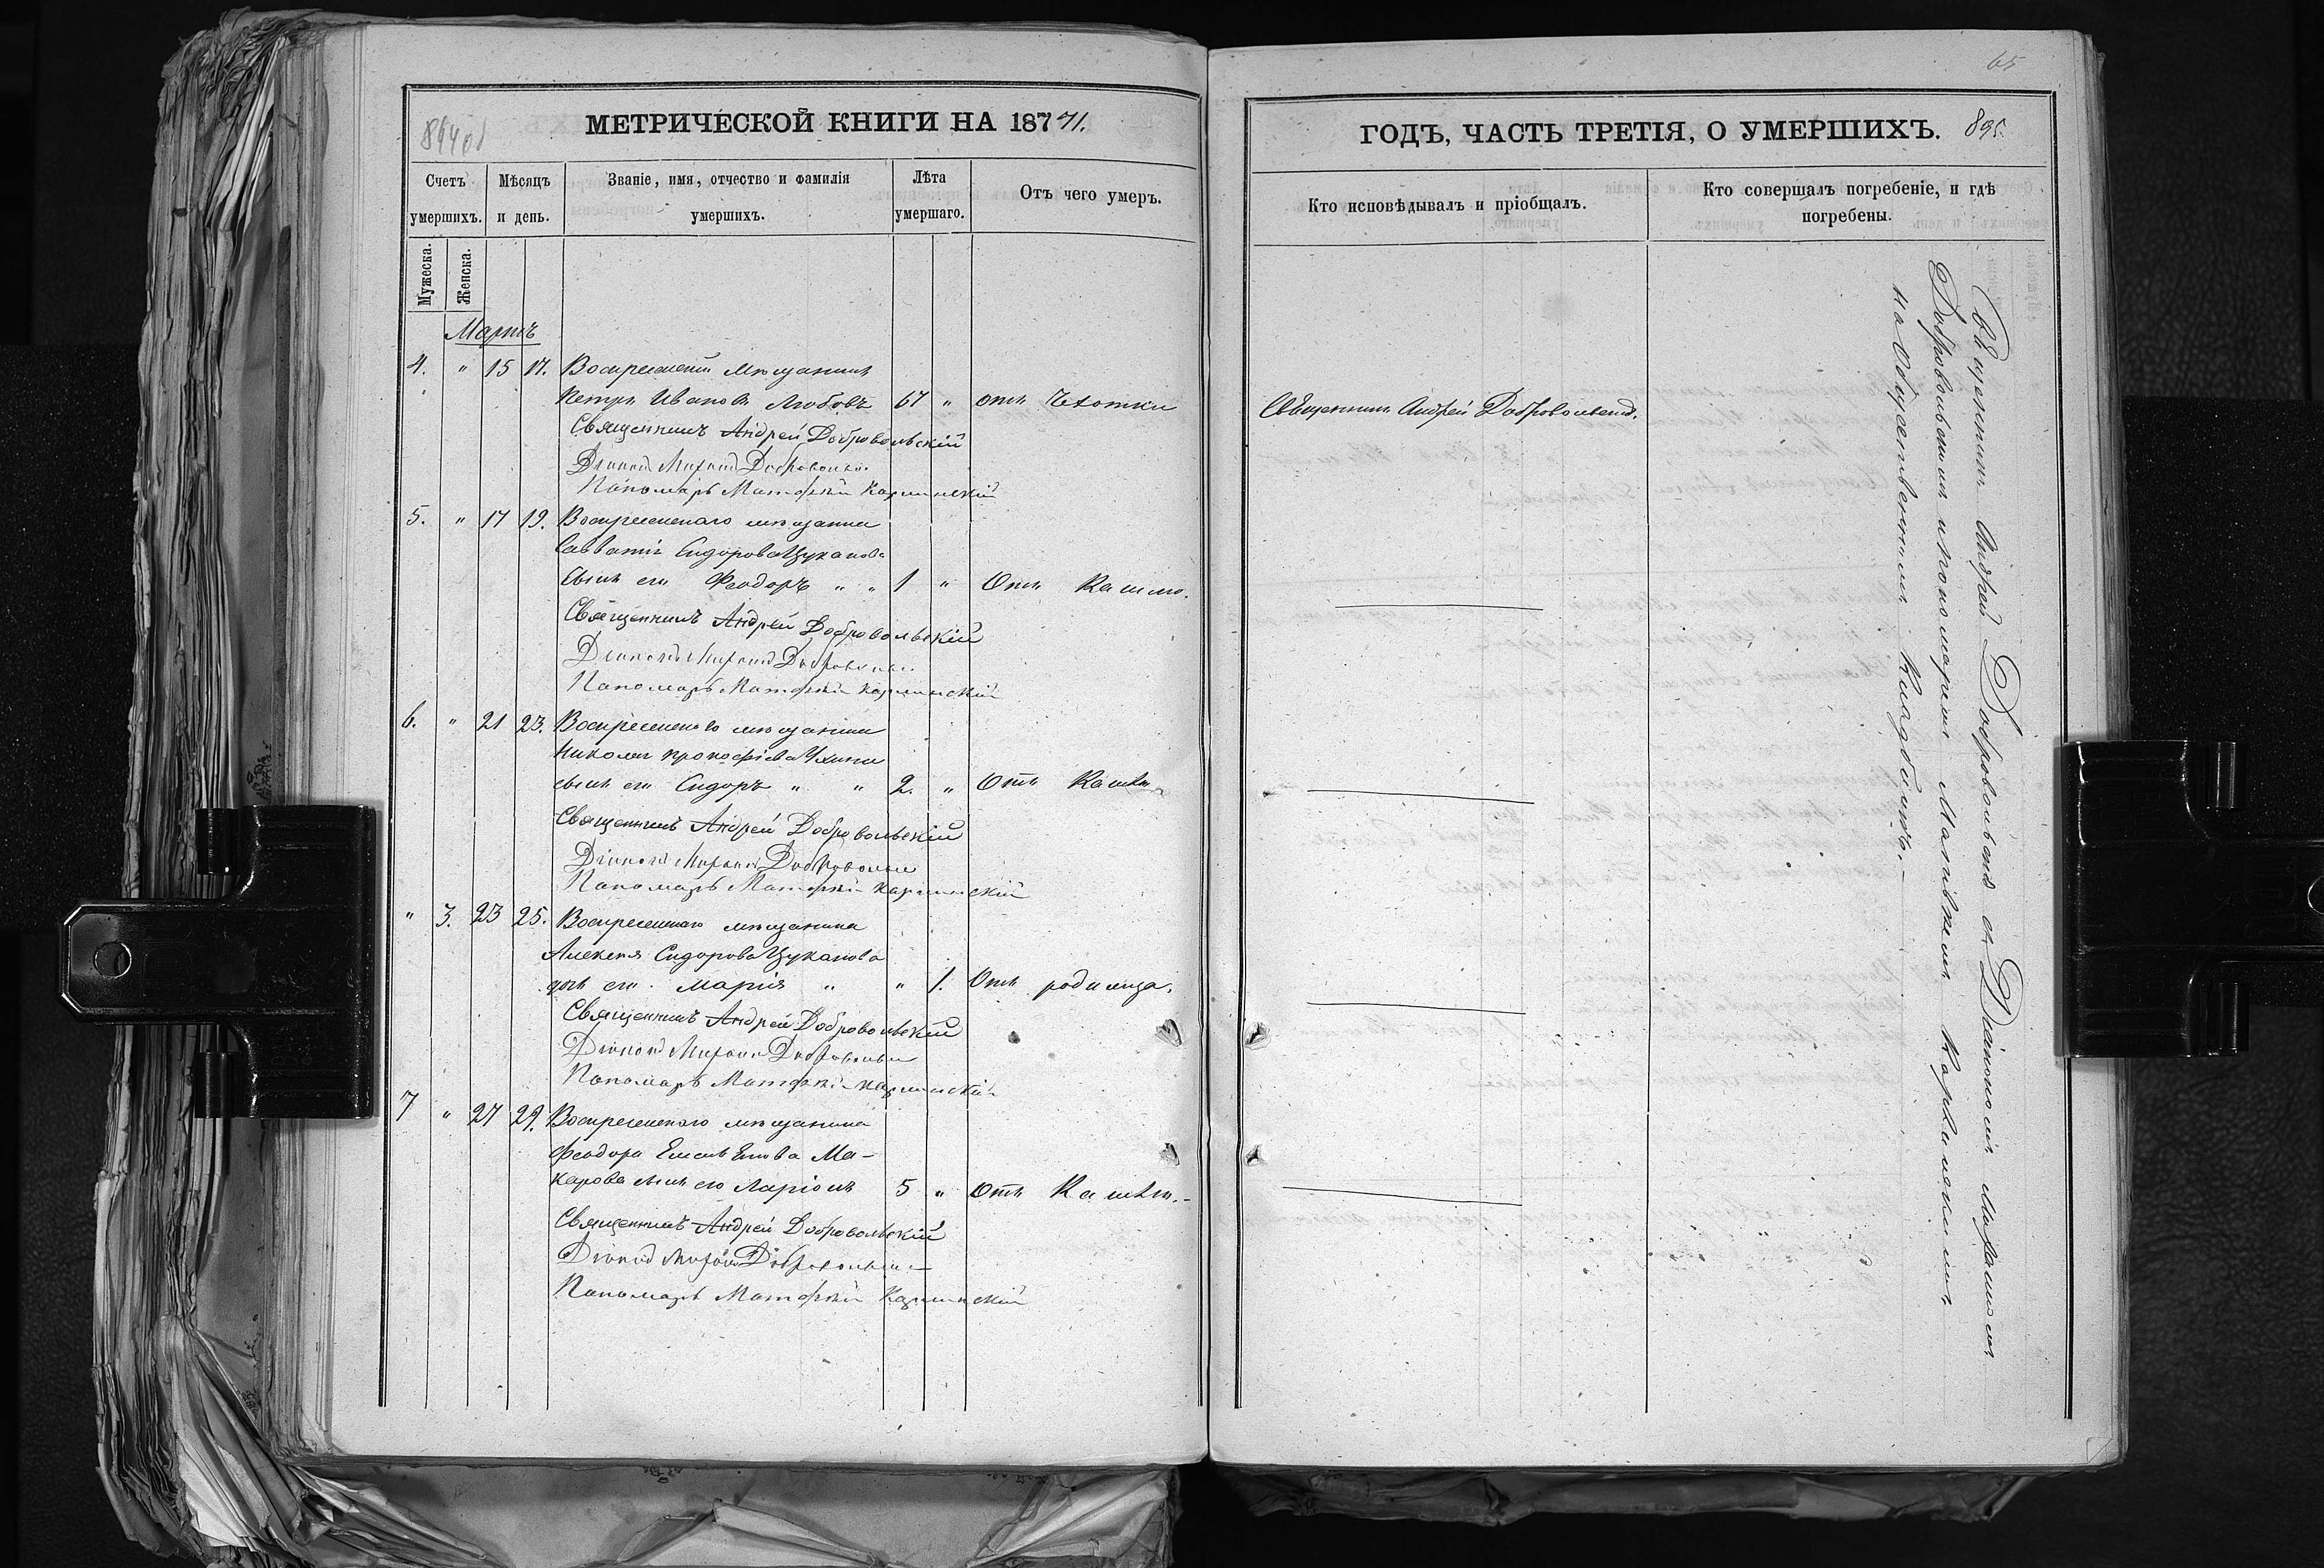 65
894об
МЕТРИЧЕСКОЙ КНИГИ НА 187 71.
Счетъ умершихъ.
Мѣсяцъ и день.
Званіе, имя, отчество и фамилія умершихъ.
Лѣта умершаго.
Отъ чего умеръ.
Мужеска.
Женска.
Мартъ
4. " 15 17. Воскресенскій мѣщанинъ
Петръ Ивановъ Любовъ 67 " отъ Чехотки
Священникъ Андрей Добровольскій
Діаконъ Добровольскій
Пономарь Матѳей
5. " 17 19. Воскресенскаго мѣщанина
Савватія Сидорова Цуканова
сынъ его Феодоръ " " 1 " Отъ Кашлю.
Священникъ Андрей Добровольскій
Діаконъ Добровольскій
Пономарь Матѳей
6. " 21 23. Воскресенскаго мѣщанина
Николая Прокофіева
сынъ его Сидоръ " " 2. " Отъ Кашлю
Священникъ Андрей Добровольскій
Діаконъ Добровольскій
Пономарь Матѳей
" 3. 23 25. Воскресенскаго мѣщанина
Алексея Сидорова Цуканова
дочь его Марія " " 1. Отъ родимца.
Священникъ Андрей Добровольскій
Діаконъ Добровольскій
Пономарь Матѳей
7 " 27 29. Воскресенскаго мѣщанина
Феодора Ма-
карова сынъ его Ларіонъ 5 " Отъ Кашлю.-
Священникъ Андрей Добровольскій
Діаконъ Добровольскій
Пономарь Матѳей
ГОДЪ, ЧАСТЬ ТРЕТІЯ, О УМЕРШИХЪ. 895.
Кто исповѣдывалъ и пріобщалъ.
Кто совершалъ погребеніе, и гдѣ погребены.
Священникъ Андрей Добровольскій.
Священникъ Андрей Добровольскій съ Діакономъ
Добровольскимъ и пономаремъ
на Общественномъ Кладбищѣ.-